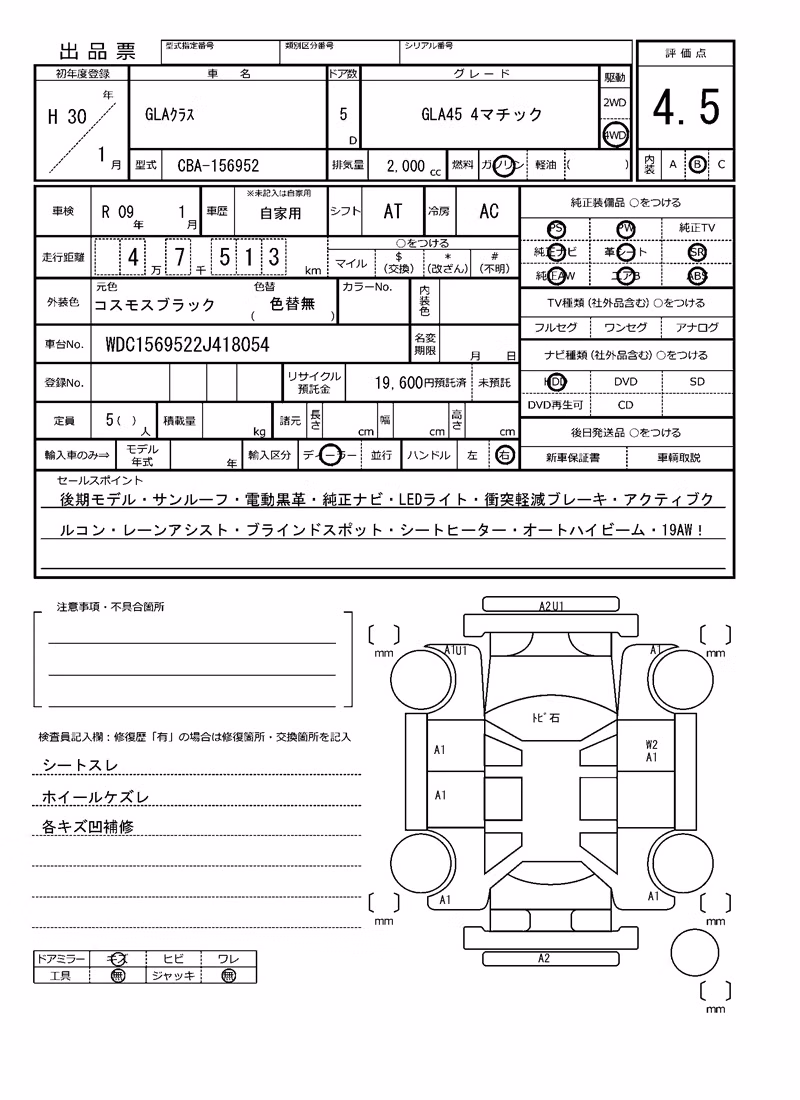 出品票 型式指定番号 類別区分番号 シリアル番号 評価点
初年度登録 車名 ドア数 グレード 駆動
H 30 年 1 月 GLAクラス 5 D GLA45 4マチック 2WD 4WD 4.5
型式 CBA-156952 排気量 2,000 cc 燃料 ガソリン 軽油 ( ) 内装 A B C
車検 R 09 年 1 月 車歴 ※未記入は自家用 自家用 シフト AT 冷房 AC
走行距離 4 万 7 千 5 1 3 km ○をつける
マイル $ (交換) * (改ざん) # (不明)
外装色 元色 コスモスブラック 色替 ( 色替無 ) カラーNo. 内装色
車台No. WDC1569522J418054 名変期限 月 日
登録No. リサイクル預託金 19,600円預託済 未預託
定員 5 ( ) 人 積載量 kg 諸元 長さ cm 幅 cm 高さ cm
輸入車のみ⇒ モデル年式 年 輸入区分 ディーラー 並行 ハンドル 左 右
純正装備品 ○をつける
PS PW 純正TV
純正ナビ 革シート SR
純正AW エアB ABS
TV種類(社外品含む)○をつける
フルセグ ワンセグ アナログ
ナビ種類(社外品含む)○をつける
HDD DVD SD
DVD再生可 CD
後日発送品 ○をつける
新車保証書 車輌取説
セールスポイント
後期モデル・サンルーフ・電動黒革・純正ナビ・LEDライト・衝突軽減ブレーキ・アクティブク
ルコン・レーンアシスト・ブラインドスポット・シートヒーター・オートハイビーム・19AW！
注意事項・不具合箇所
検査員記入欄：修復歴「有」の場合は修復箇所・交換箇所を記入
シートスレ
ホイールケズレ
各キズ凹補修
ドアミラー キズ ヒビ ワレ
工具 無 ジャッキ 無
A2U1
mm mm
A1U1 A1
トビ石
A1 W2
A1
A1
A1 A1
mm mm
A2
mm